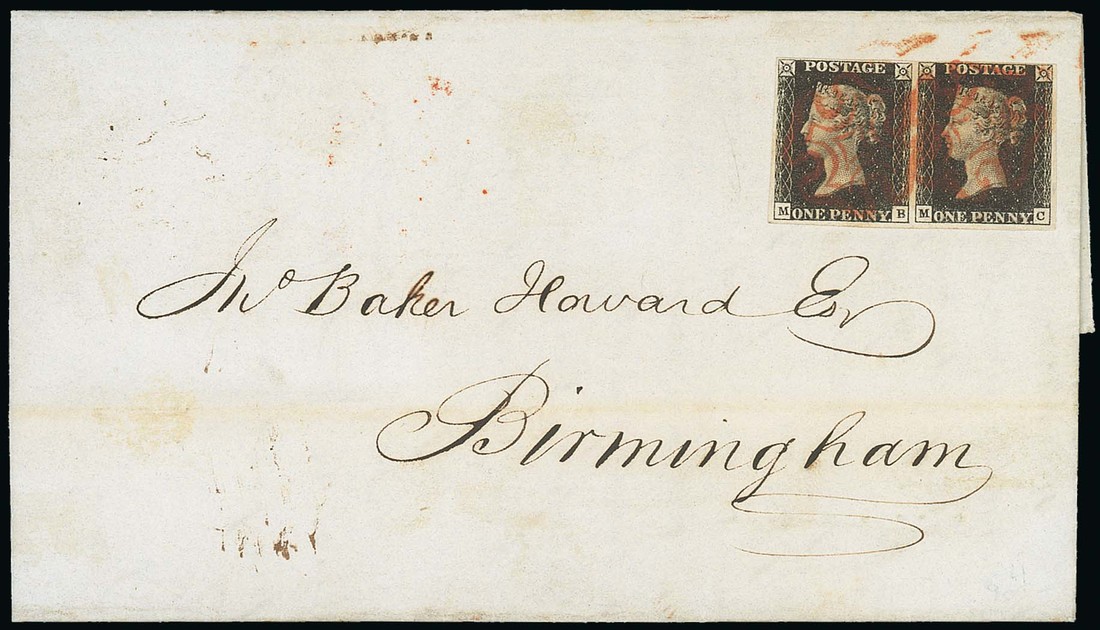 POSTAGE POSTAGE
M ONE PENNY B M ONE PENNY C
Jno Baker Howard Esr
Birmingham